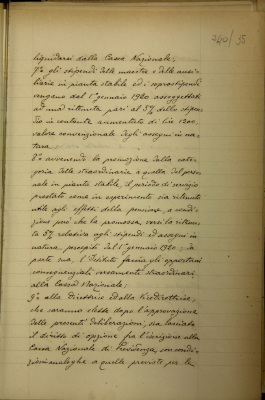 740/35
liquidarsi dalla Cassa Nazionale;
7° gli stipendi delle maestre e delle ausi-
liarie in pianta stabile ed i soprastipendi
vengano dal 1° gennaio 1920 assoggettati
ad una ritenuta pari al 5% dello stipen-
dio in contante aumentato di lire 1200,
valore convenzionale degli assegni in na-
tura
8° avvenendo la promozione dalla cate-
goria delle straordinarie a quella del perso-
nale in pianta stabile, il periodo di servizio
prestato come in esperimento sia ritenuto
utile agli effetti della pensione, a condi-
zione però che la promossa, versi la ritenu-
ta 5% relativa agli stipendi ed assegni in
natura, percepiti dal 1° gennaio 1920; da
parte sua, l'Istituto farà gli opportuni
conseguenziali versamenti straordinari
alla Cassa Nazionale;
9° alla Direttrice ed alla Vicedirettrice,
che saranno elette dopo l'approvazione
delle presenti deliberazioni, sia lasciato
il diritto di opzione fra l'iscrizione alla
Cassa Nazionale di Previdenza, con condi-
zioni analoghe a quelle previste per le